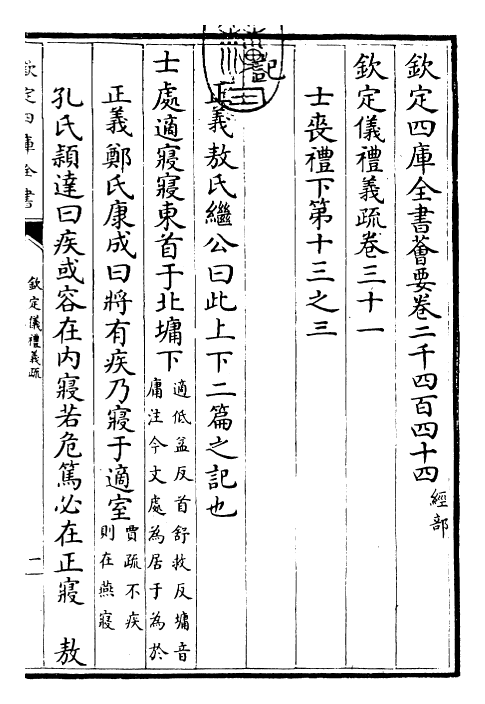 欽定四庫全書薈要卷二千四百四十四 經部
欽定儀禮義疏卷三十一
士喪禮下第十三之三
記
正義敖氏繼公曰此上下二篇之記也
士處適寢寢東首于北墉下適低益反首舒救反墉音庸注今文處為居于為於
正義鄭氏康成曰將有疾乃寢于適室賈疏不疾則在燕寢
孔氏穎達曰疾或容在内寢若危篤必在正寢 敖
欽定四庫全書
欽定儀禮義疏
一